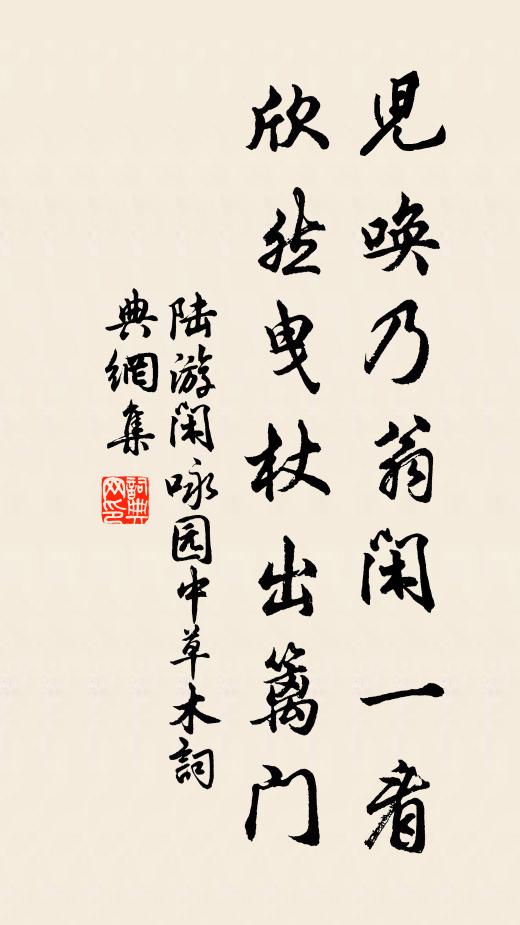 兒唤乃翁闲一看
欣然曳杖出篱门
陆游闲咏园中草木詞
典網集
詞典网印